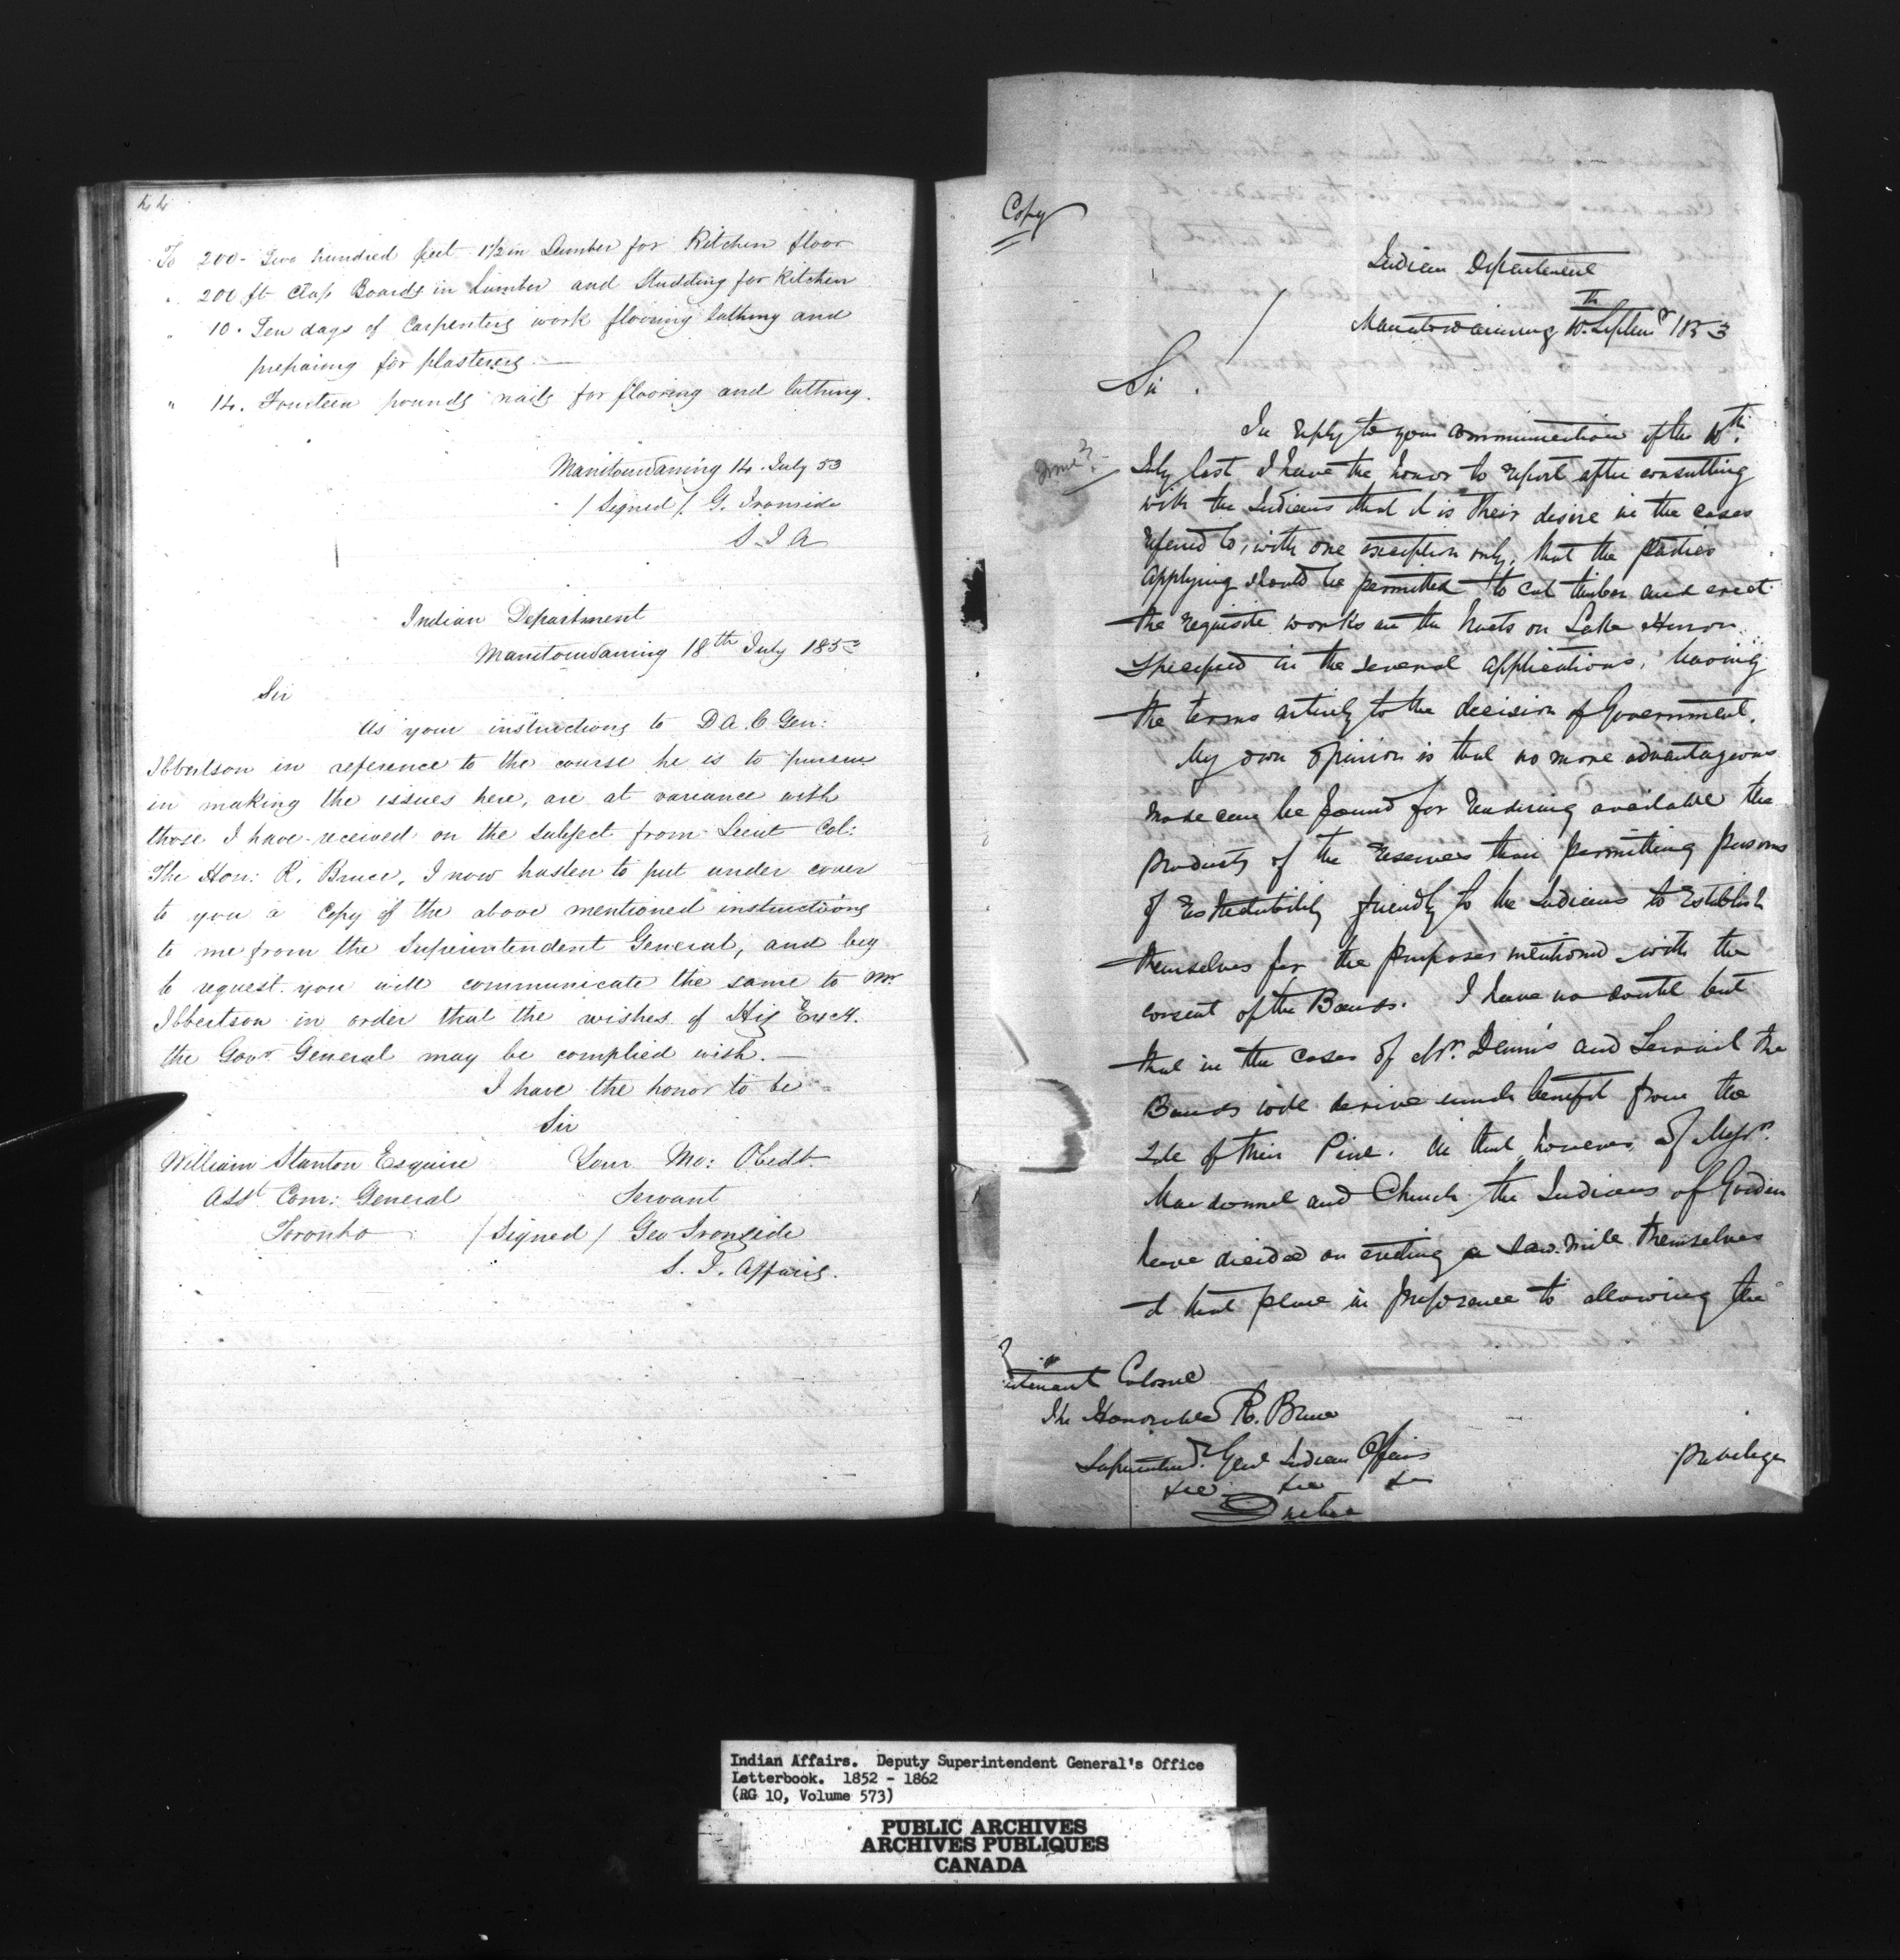 44
To 200 - Two hundred feet 1 1/2 in Lumber for Kitchen floor
" 200 ft Clap Boards in Lumber and Studding for Kitchen
" 10. Ten days of Carpenters work flooring lathing and
prepairing for plasterers. —
" 14. Fourteen pounds nails for flooring and lathing.
Manitouwaning 14. July 53
/ Signed / G. Ironside
S. I. A
Indian Department
Manitouwaning 18th July 1853
Sir
As your instructions to D. A. C Gen:
Ibbetson in reference to the course he is to pursue
in making the issues here, are at variance with
those I have received on the subject from Lieut Col:
The Hon: R. Bruce, I now hasten to put under cover
to you a Copy of the above mentioned instructions
to me from the Superintendent General, and beg
to request you will communicate the same to Mr.
Ibbertson in order that the wishes of His Excy.
the Govr. General may be complied wish. —
I have the honor to be
Sir
William Stanton Esquire Your Mo: Obedt.
Asst Com: General Servant
Toronto / Signed / Geo Ironside
S. I. Affairs.
Copy
Indian Department
Manitowaning 10th Septemr 1853
Sir.
In reply to your communication of the 10th
June?
July last I have the honor to report after consulting
with the Indians that it is their desire in the cases
refered to, with one exception only, that the parties
applying should be permitted to cut timber and erect
the requisite works on the tracts on Lake Huron
specified in the several applications, leaving
the terms entirely to the decision of Government.
My own opinion is that no more advantageous
mode can be found for rendering available the
products of the reserves than permitting persons
of respectability friendly to the Indians to establish
themselves for the purposes mentioned with the
consent of the Bands. I have no doubt but
that in the cases of Mr. Dennis and the
Bands will derive much benefit from the
sale of their Pine. In that however, of Messrs.
Macdonnel and Church the Indians of Garden
have decided on erecting a saw-mill themselves
at that place in preference to allowing the
privilege
Lieutenant Colonel
The Honorable R. Bruce
Superintendt. Genl Indian Affairs
&c &c &c
Quebec
Indian Affairs. Deputy Superintendent General's Office
Letterbook. 1852 - 1862
(RG 10, Volume 573)
PUBLIC ARCHIVES
ARCHIVES PUBLIQUES
CANADA